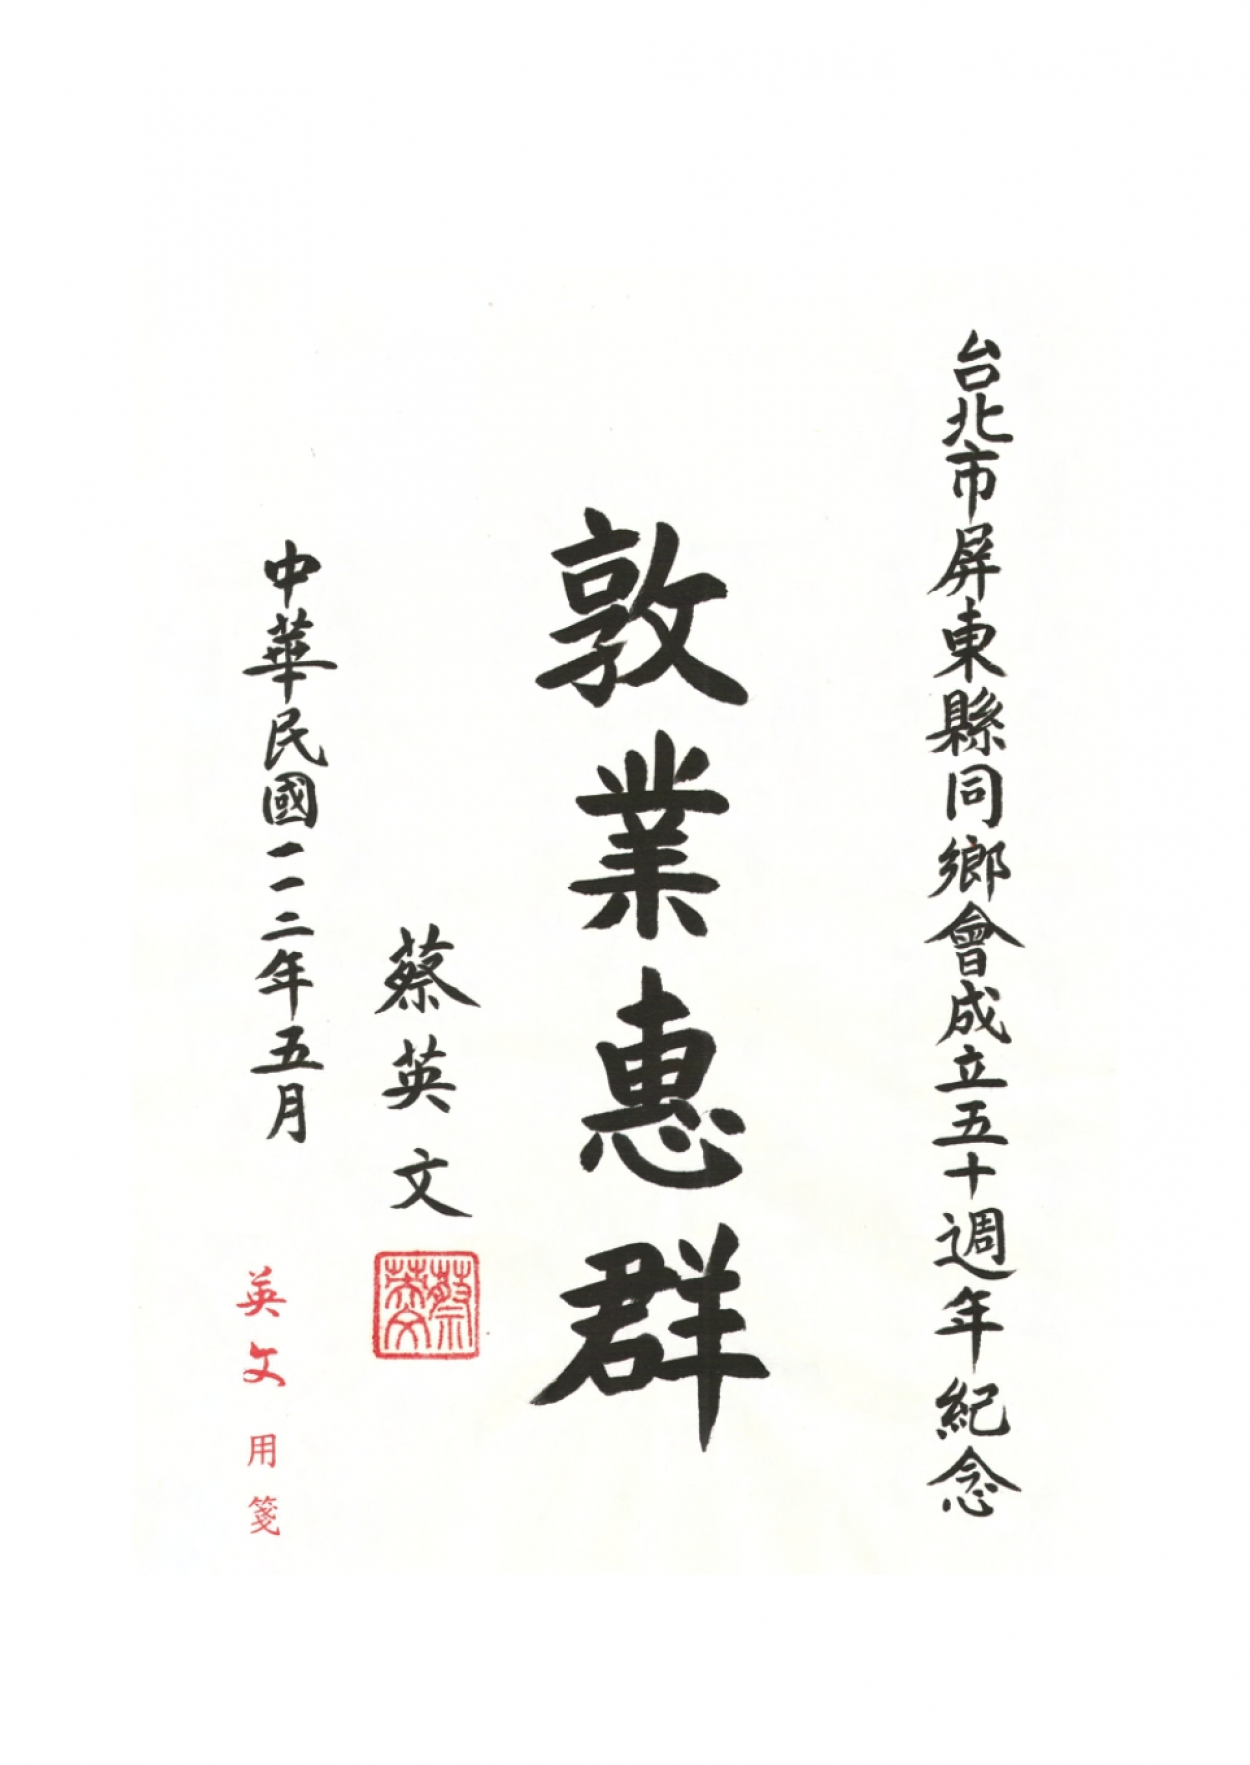 台北市屏東縣同鄉會成立五十週年紀念
敦業惠群
蔡英文
蔡英文
中華民國一一二年五月
英文用箋